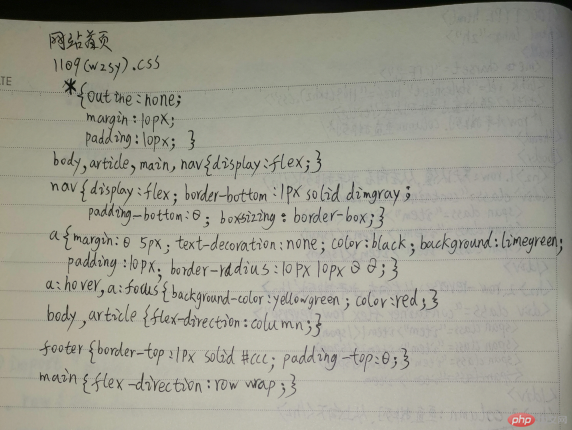 网站首页
1109(wzsy).css
DATE
*{outline:none;
margin:10px;
padding:10px; }
body,article,main,nav{display:flex;}
nav{display:flex; border-bottom:1px solid dimgray;
padding-bottom:0; boxsizing:border-box;}
a{margin:0 5px; text-decoration:none; color:black; background:limegreen;
padding:10px; border-radius:10px 10px 0 0;}
a:hover,a:focus{background-color:yellowgreen; color:red;}
body,article{flex-direction:column;}
footer{border-top:1px solid #ccc; padding-top:0;}
main{flex-direction:row wrap;}
php